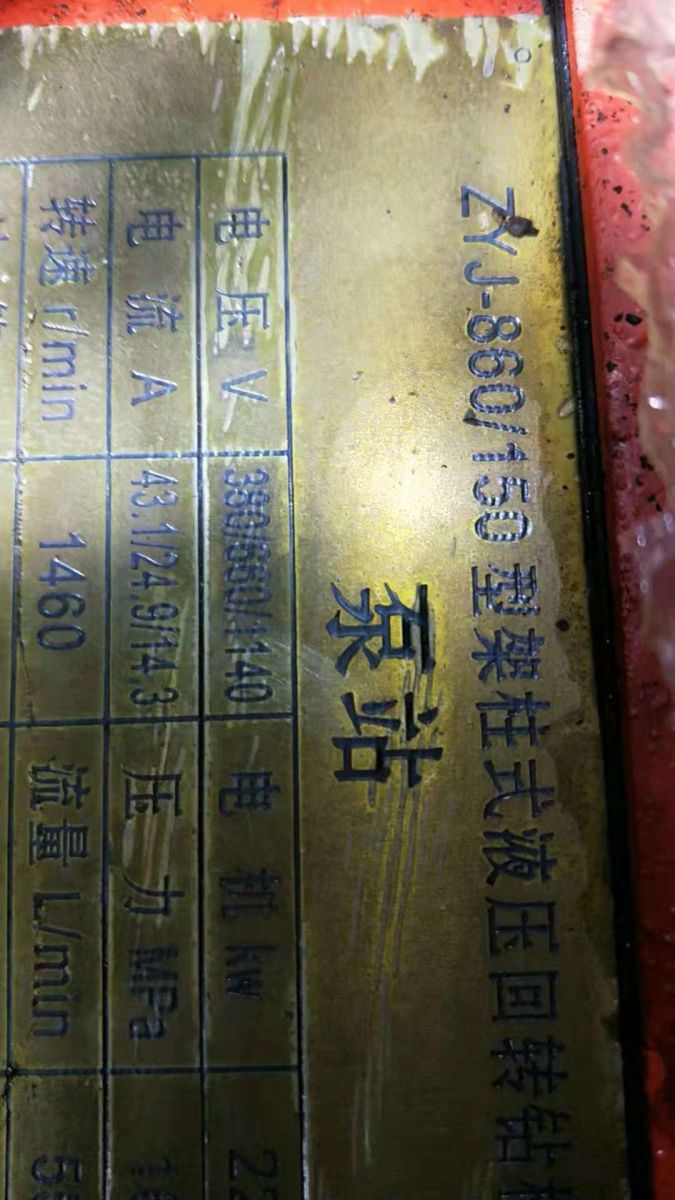 ZYJ-860/150型架柱式液压回转钻
泵站
电压 V 380/660/1140 电机 kw 22
电流 A 43.1/24.9/14.3 压力 MPa
转速 r/min 1460 流量 L/min